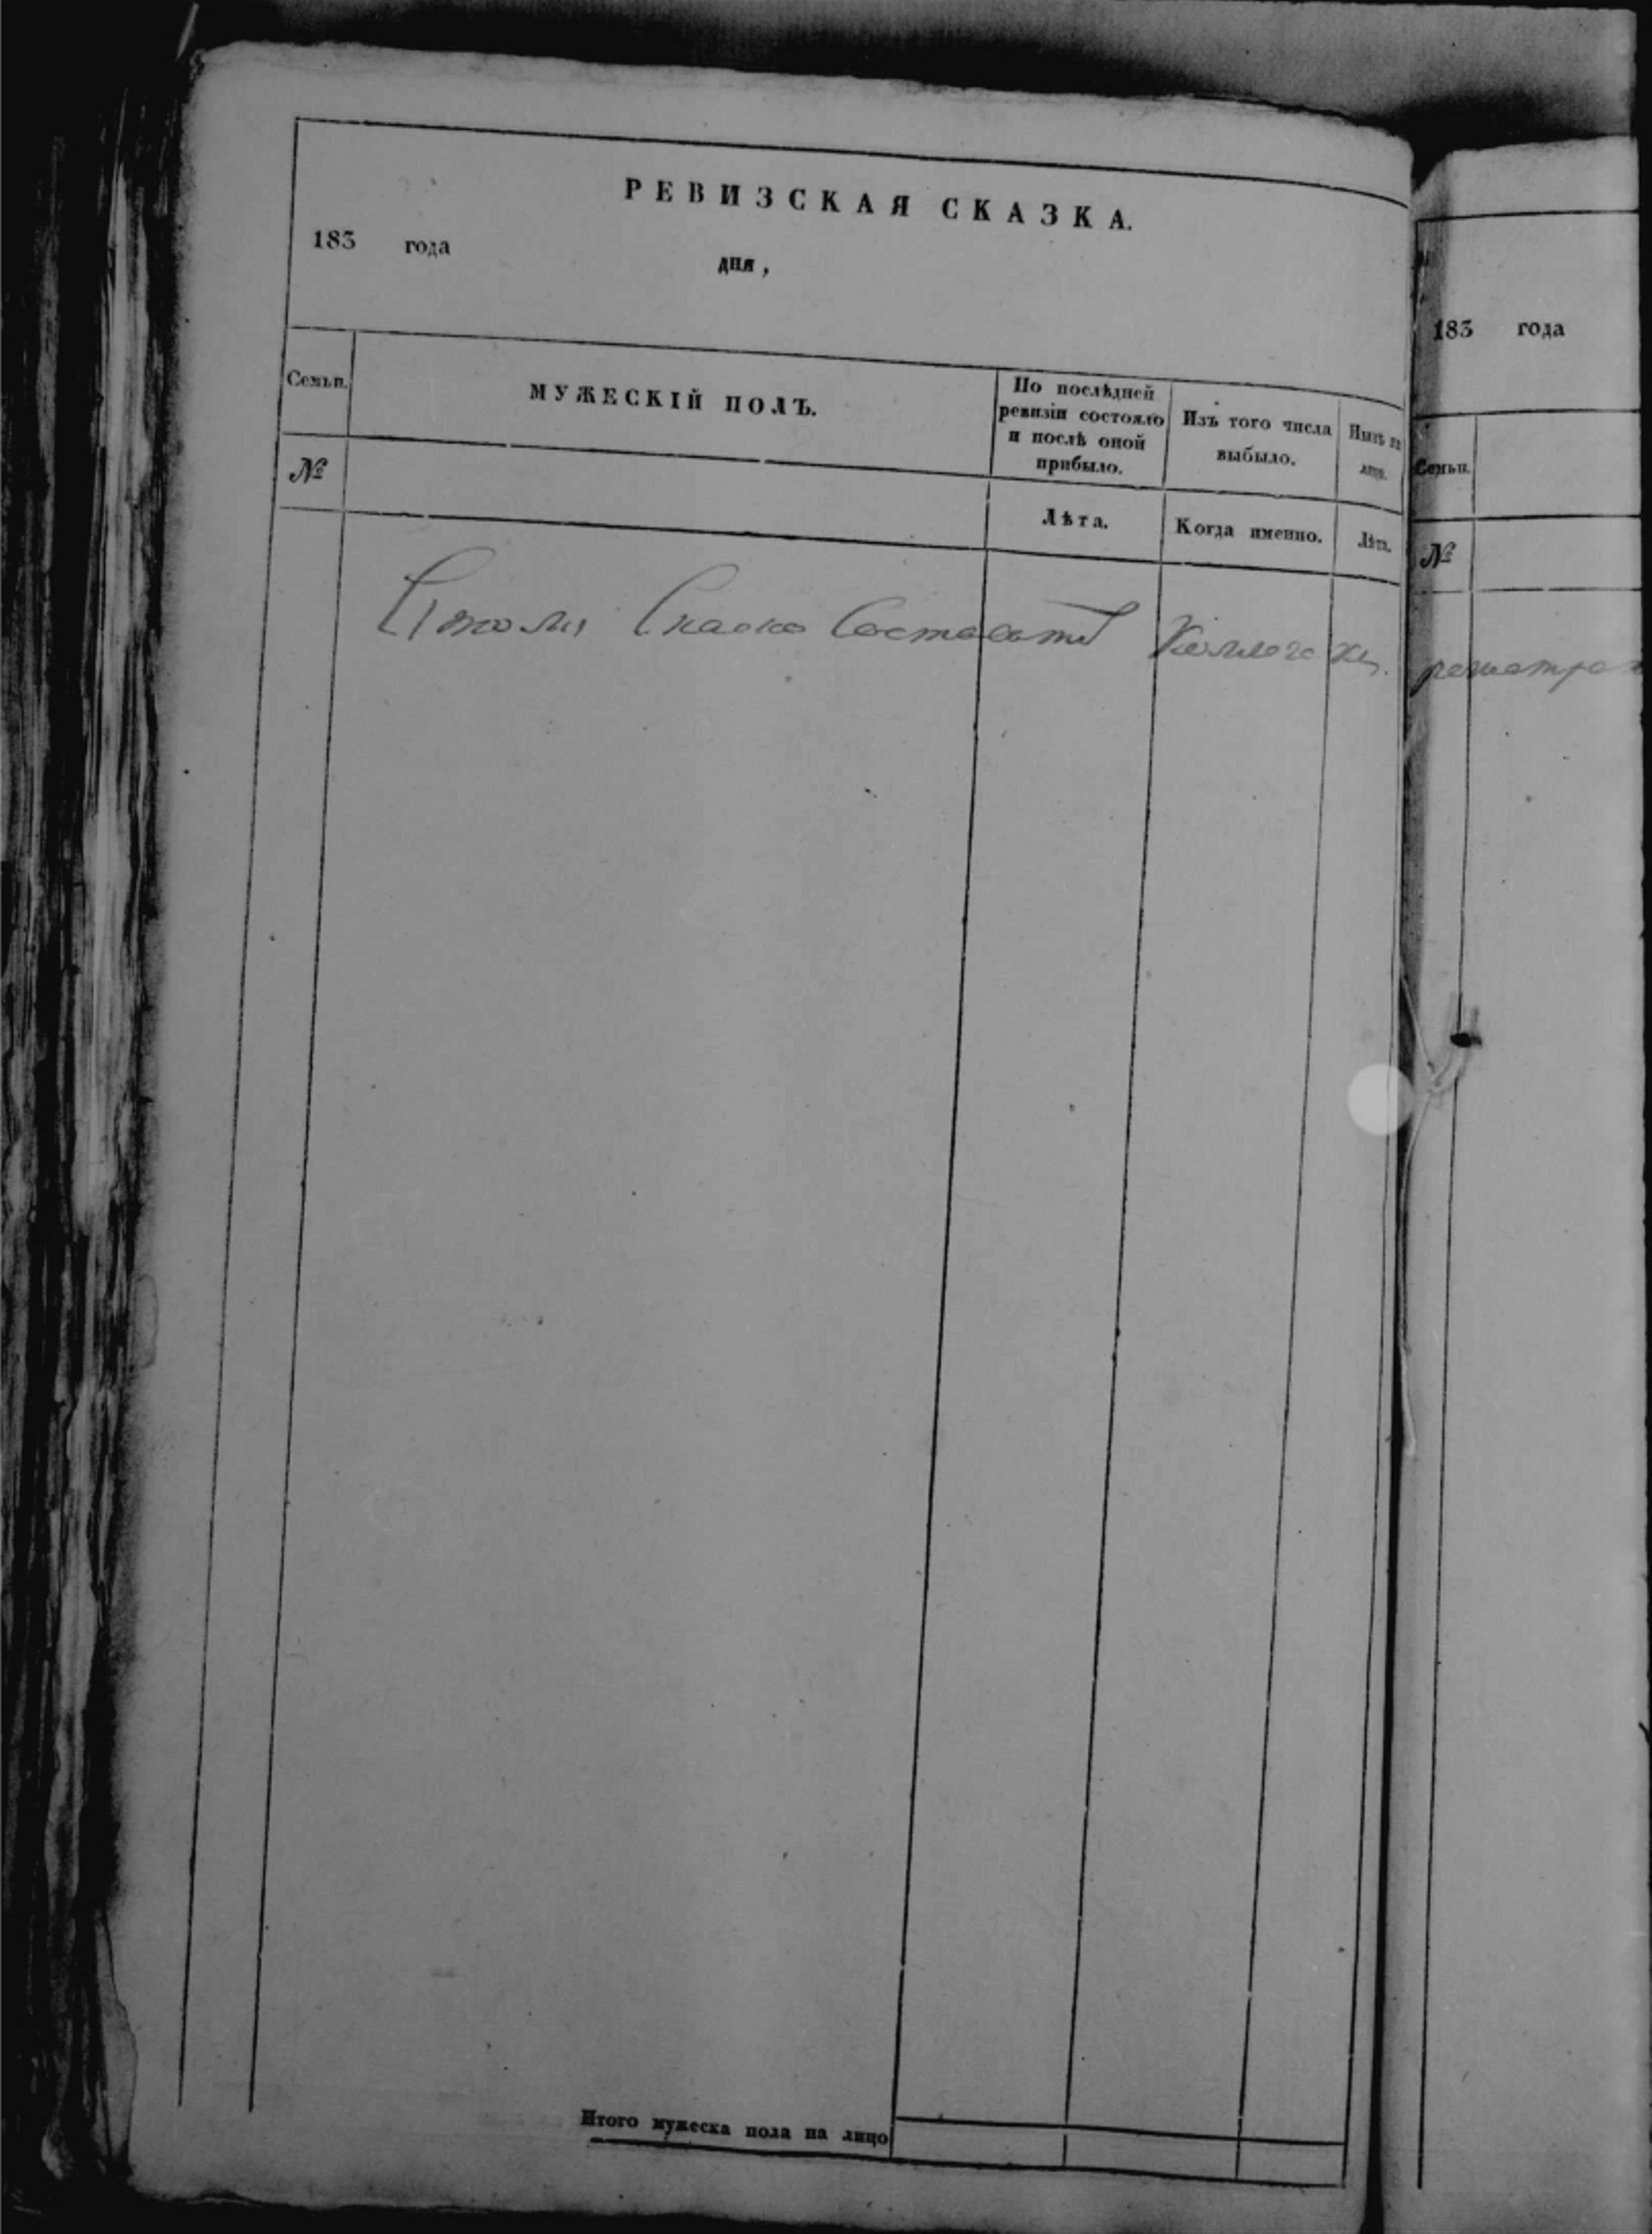 РЕВИЗСКАЯ СКАЗКА.
183 года дня,
Семьи.
МУЖЕСКІЙ ПОЛЪ.
По послѣдней
ревизіи состояло
и послѣ оной
прибыло.
Изъ того числа
выбыло.
Нынѣ на
лицо.
№
Лѣта.
Когда именно.
Лѣта.
Итого мужеска пола на лицо
183 года
Семьи.
№